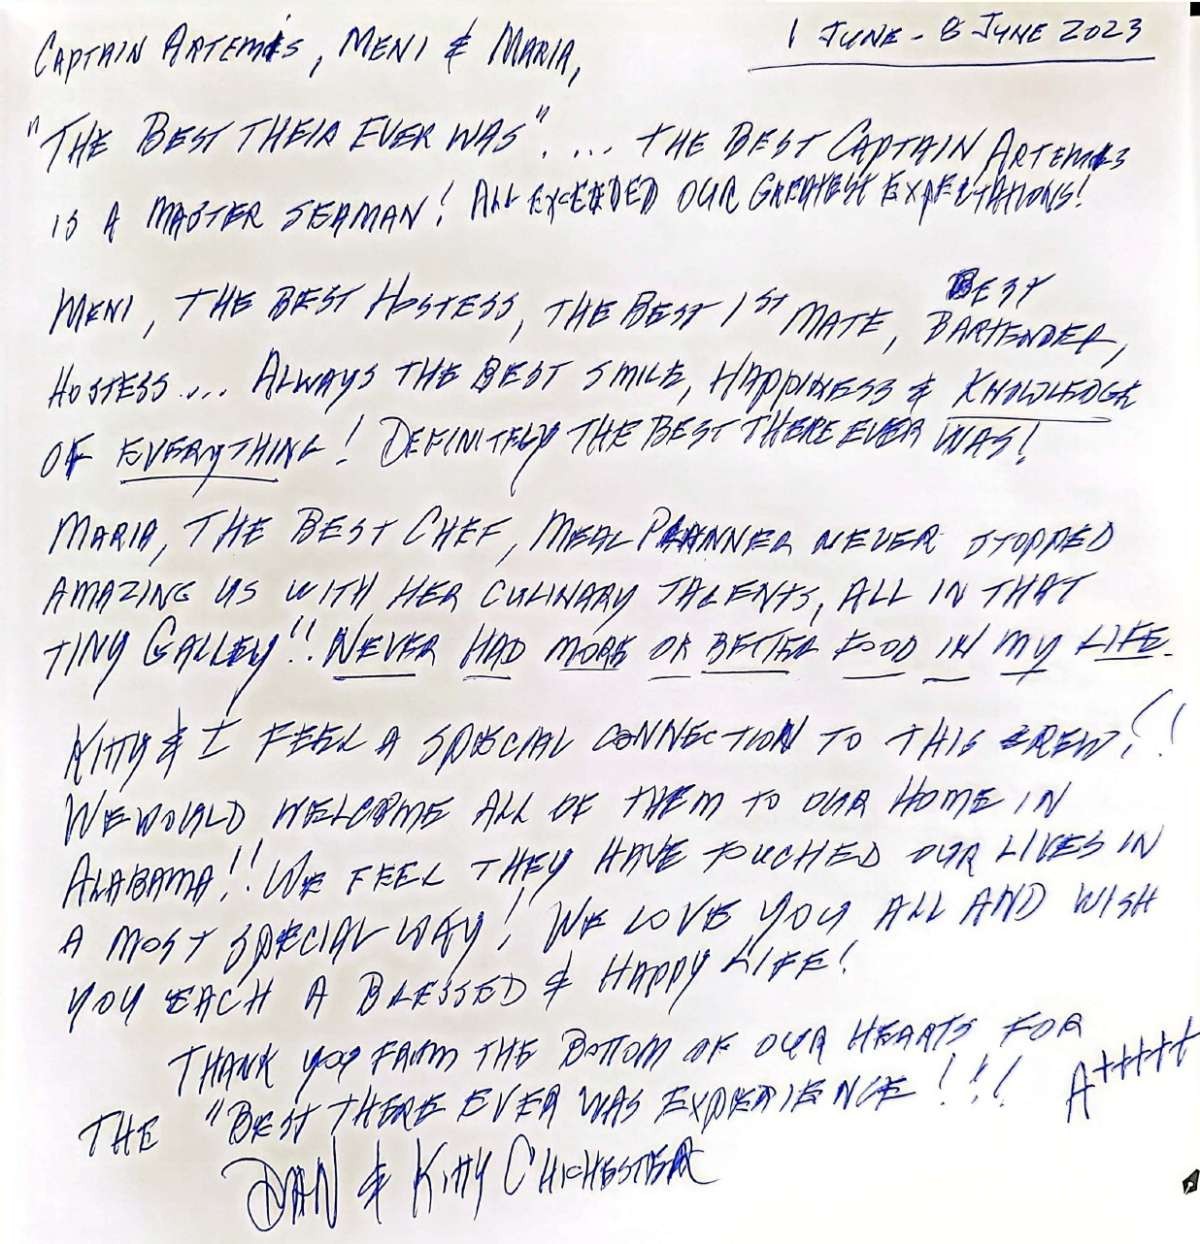 1 JUNE - 8 JUNE 2023
CAPTAIN ARTEMIS, MENI & MARIA,
"THE BEST THEIR EVER WAS".... THE BEST CAPTAIN ARTEMIS
IS A MASTER SEAMAN! ALL EXCEEDED OUR GREATEST EXPECTATIONS!
MENI, THE BEST HOSTESS, THE BEST 1ST MATE, BEST
BARTENDER,
HOSTESS... ALWAYS THE BEST SMILE, HAPPINESS & KNOWLEDGE
OF EVERYTHING! DEFINITELY THE BEST THERE EVER WAS!
MARIA, THE BEST CHEF, MEAL PLANNER NEVER STOPPED
AMAZING US WITH HER CULINARY TALENTS, ALL IN THAT
TINY GALLEY!! NEVER HAD MORE OR BETTER FOOD IN MY LIFE.
KITTY & I FEEL A SPECIAL CONNECTION TO THIS CREW!!
WE WOULD WELCOME ALL OF THEM TO OUR HOME IN
ALABAMA!! WE FEEL THEY HAVE TOUCHED OUR LIVES IN
A MOST SPECIAL WAY! WE LOVE YOU ALL AND WISH
YOU EACH A BLESSED & HAPPY LIFE!
THANK YOU FROM THE BOTTOM OF OUR HEARTS FOR
THE "BEST THERE EVER WAS EXPERIENCE!!! A+++++
DAN & KITTY CHICHESTER